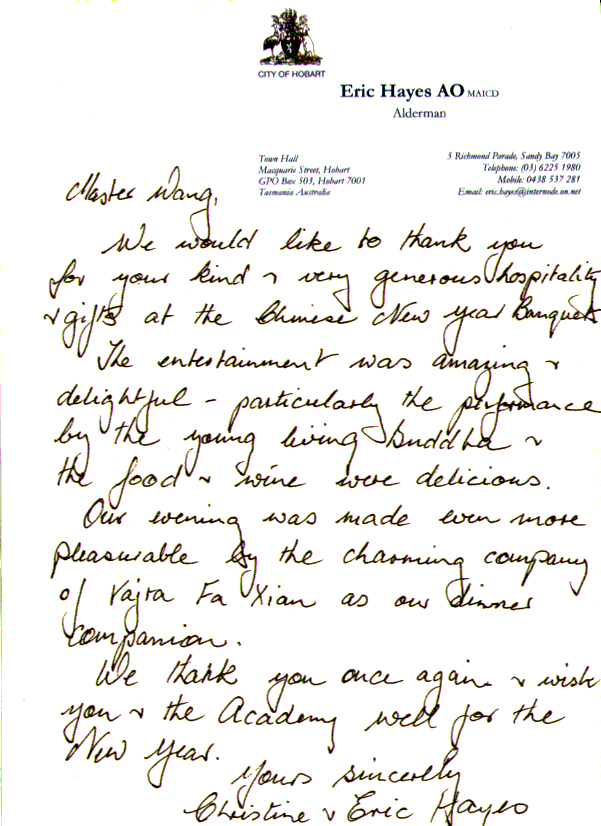 CITY OF HOBART
Eric Hayes AO MAICD
Alderman
Town Hall
Macquarie Street, Hobart
GPO Box 503, Hobart 7001
Tasmania Australia
5 Richmond Parade, Sandy Bay 7005
Telephone: (03) 6225 1980
Mobile: 0438 537 281
Email: eric.hayes@internode.on.net
Master Wang,
We would like to thank you
for your kind & very generous hospitality
& gifts at the Chinese New Year Banquet
The entertainment was amazing &
delightful - particularly the performance
by the young living Buddha &
the food & wine were delicious.
Our evening was made even more
pleasurable by the charming company
of Vajra Fa Xian as our dinner
companion.
We thank you once again & wish
you & the Academy well for the
New Year.
Yours sincerely
Christine & Eric Hayes